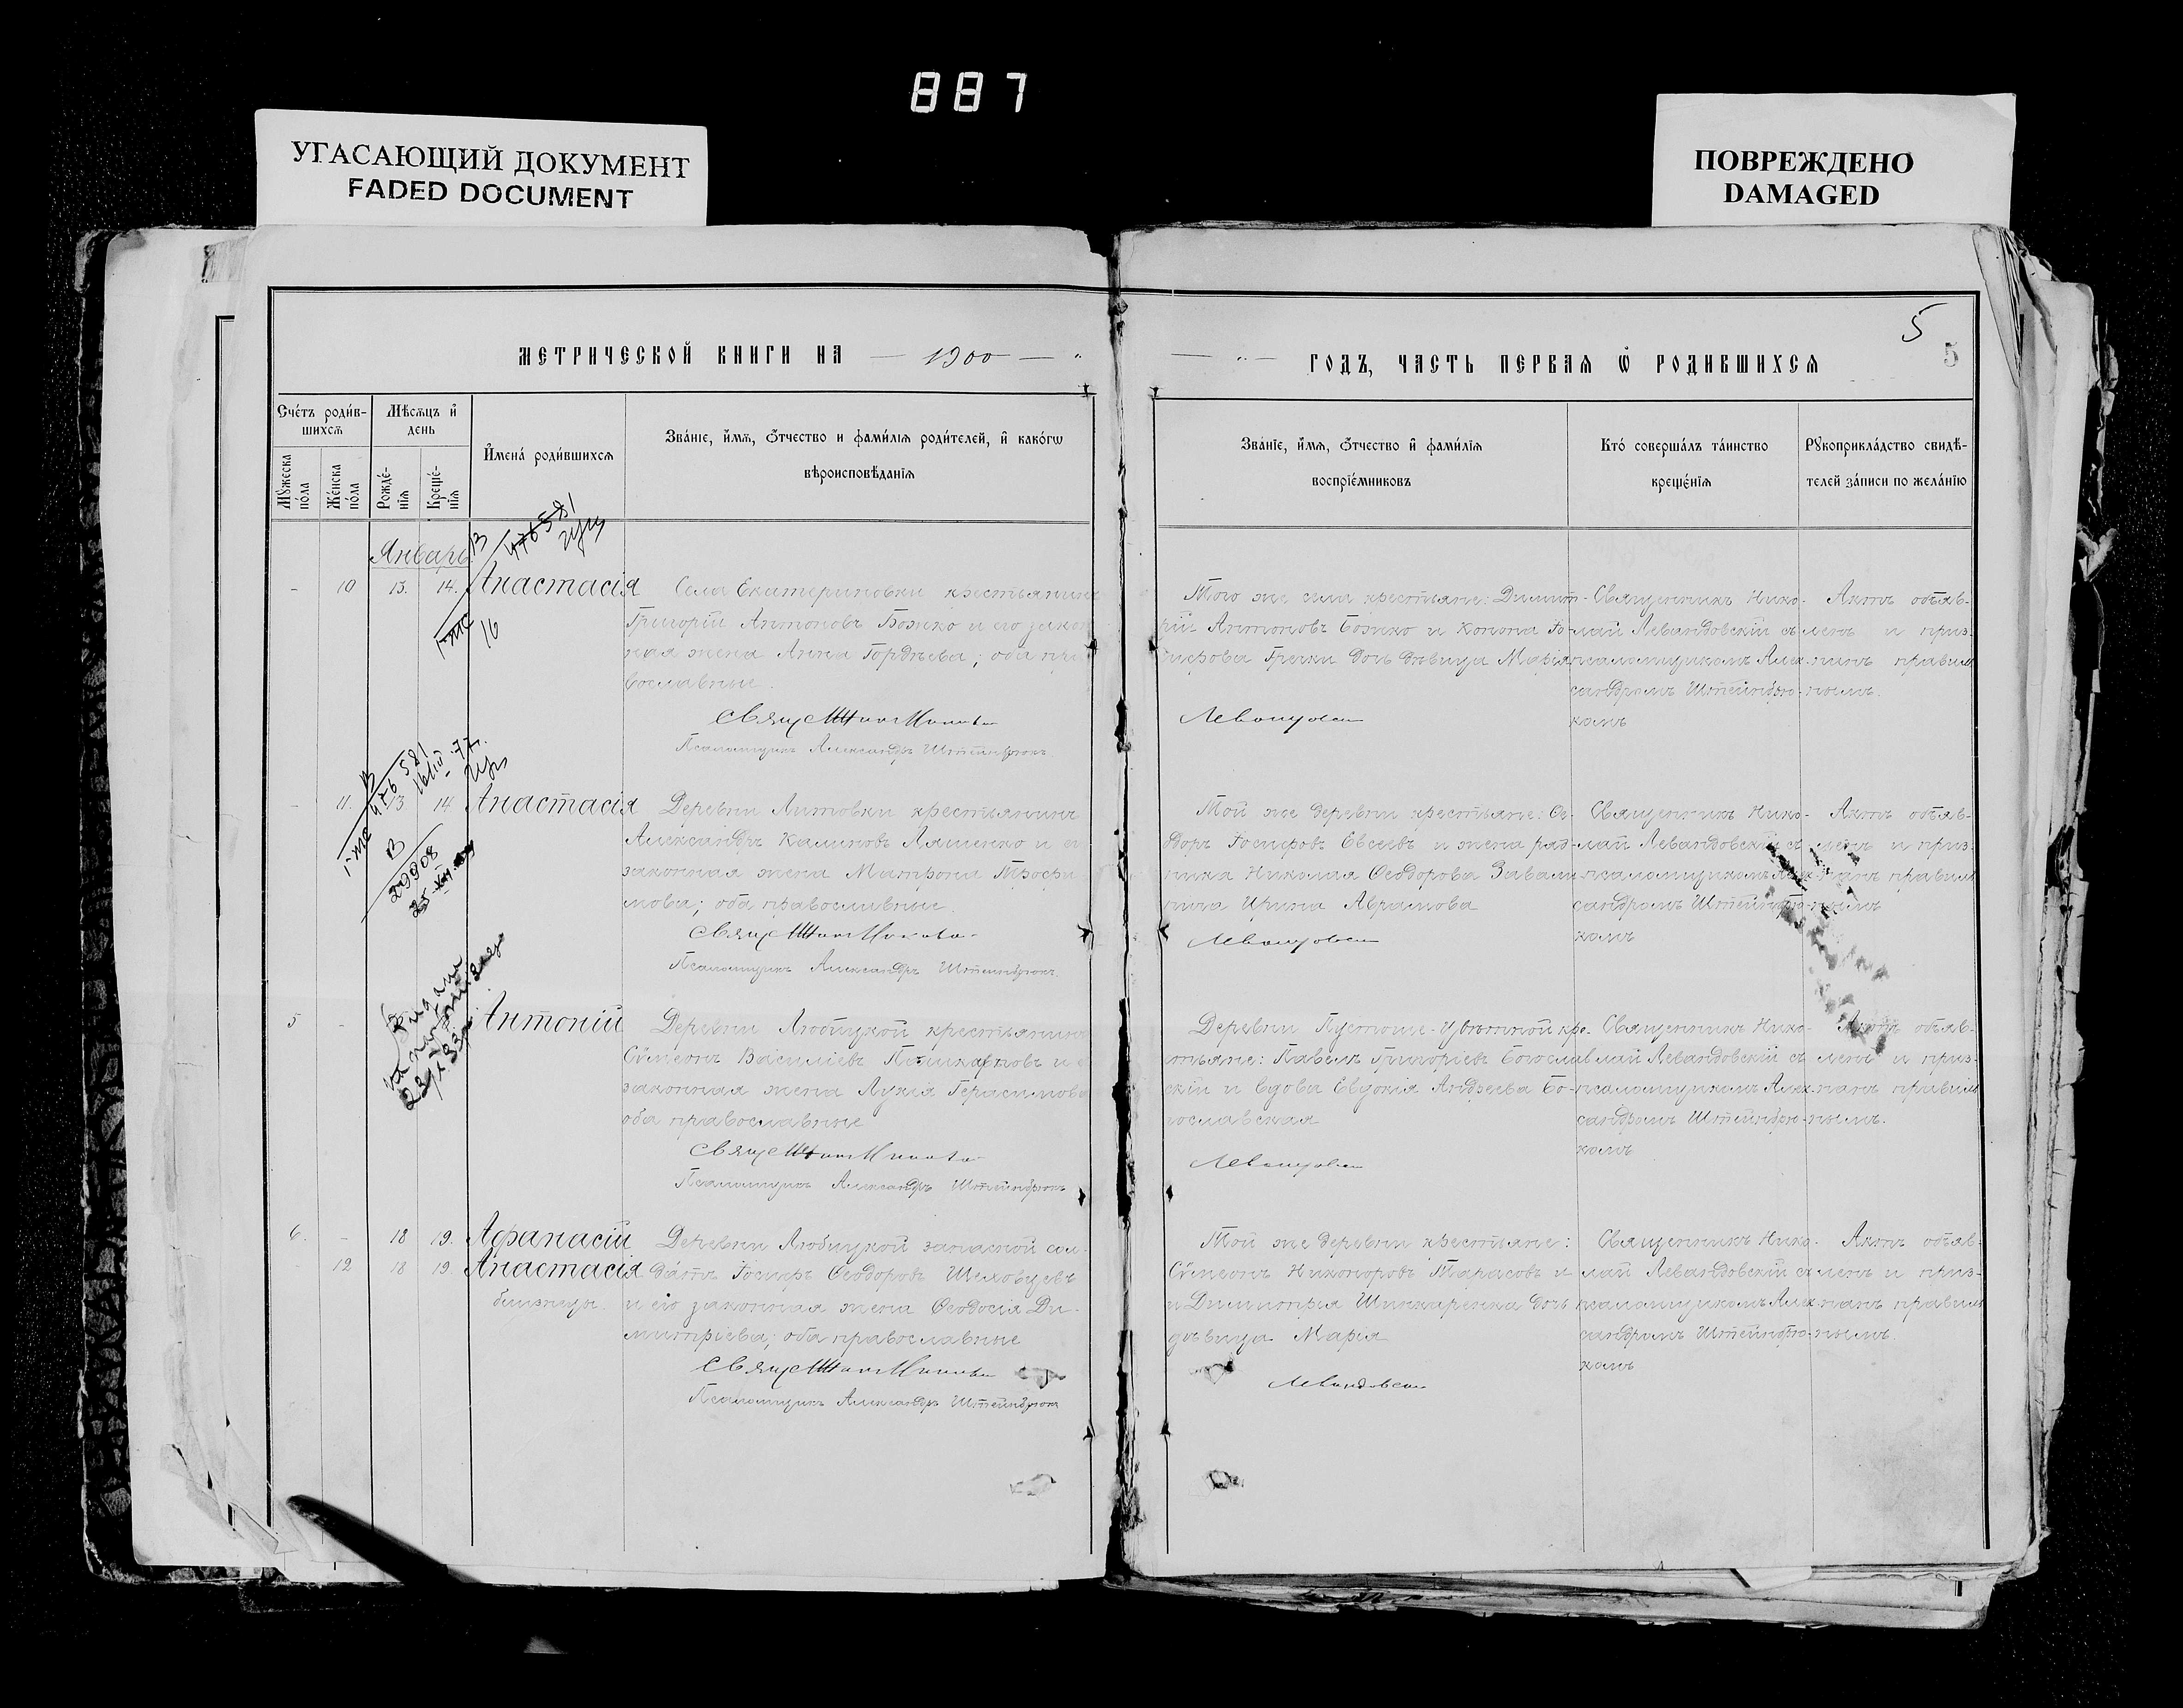 887
УГАСАЮЩИЙ ДОКУМЕНТ
FADED DOCUMENT
ПОВРЕЖДЕНО
DAMAGED
5
5
МЕТРИЧЕСКОЙ КНИГИ НА — 1900 —
ГОДЪ, ЧАСТЬ ПЕРВАЯ Ѡ РОДИВШИХСЯ
Счéтъ роди́в-
шихсѧ
Мѣ́сѧцъ и҆
день
Мꙋ́жеска
по́ла
Же́нска
по́ла
Рожде́-
нїѧ
Креще́-
нїѧ
И҆мена̀ роди́вшихсѧ
Зва́нїе, и҆́мѧ, ѻ҆́тчество и фами́лїѧ роди́телей, и҆ како́гѡ
вѣроисповѣ́данїѧ
Зва́нїе, и҆́мѧ, ѻ҆́тчество и҆ фами́лїѧ
воспрїе́мниковъ
Кто́ соверша́лъ та́инство
креще́нїѧ
Рꙋкоприкла́дство свидѣ́-
телей за́писи по жела́нїю
Январь
476581
- 10 13. 14. Анастасія
16
Села Екатериновки крестьянинъ
Григорій Антоновъ Божко и его закон
ная жена Анна Гордѣева; оба пра
вославные.
Псаломщикъ Александръ Штейнбрюкъ
Того же села крестьяне: Димит-
рій Антоновъ Божко и Конона Іо-
сифова Гречки дочь дѣвица Марія
Священникъ Нико-
лай Левандовскій съ
псаломщикомъ Алек-
сандромъ Штейнбрю-
комъ
Актъ объяв-
ленъ и приз-
нанъ правиль
нымъ.
476581
- 11. 13 14 Анастасія
29908
Деревни Литовки крестьянинъ
Александръ Калиновъ Ляшенко и ег
законная жена Матрона Трофи
мова; оба православные.
Псаломщикъ Александръ Штейнбрюкъ.
Той же деревни крестьяне: Ѳе-
доръ Іосифовъ Евсеевъ и жена ряд-
ника Николая Ѳеодорова Завали-
Ирина Аврамова
Священникъ Нико-
лай Левандовскій съ
псаломщикомъ Алек-
сандромъ Штейнбрю-
комъ
Актъ объяв-
ленъ и приз-
нанъ правиль
нымъ
5 - Антоній
Деревни Любицкой крестьянинъ
Сѵмеонъ Василіевъ и е
законная жена Лукія Герасимова
оба православные
Псаломщикъ Александръ Штейнбрюкъ
Деревни Пустоше-Цвѣтной кре-
стьяне: Павелъ Григоріевъ Богослав
скій и вдова Евдокія Андреева Бо-
гославская
Священникъ Нико-
лай Левандовскій съ
псаломщикомъ Алек-
сандромъ Штейнбрю-
комъ
Актъ объяв-
ленъ и приз-
нанъ правиль
нымъ.
6. - 18 19. Афанасій
- 12 18 19. Анастасія
близнецы.
Деревни Любицкой запасной сол-
датъ Іосифъ Ѳеодоровъ Шеховцевъ
и его законная жена Ѳеодосія Ди-
митріева; оба православные
Псаломщикъ Александръ Штейнбрюкъ
Той же деревни крестьяне:
Сѵмеонъ Никоноровъ Тарасовъ и
и Димитрія Шинкаренка дочь
дѣвица Марія
Левандовскій
Священникъ Нико-
лай Левандовскій съ
псаломщикомъ Алек-
сандромъ Штейнбрю-
комъ
Актъ объяв-
ленъ и приз-
нанъ правиль
нымъ.